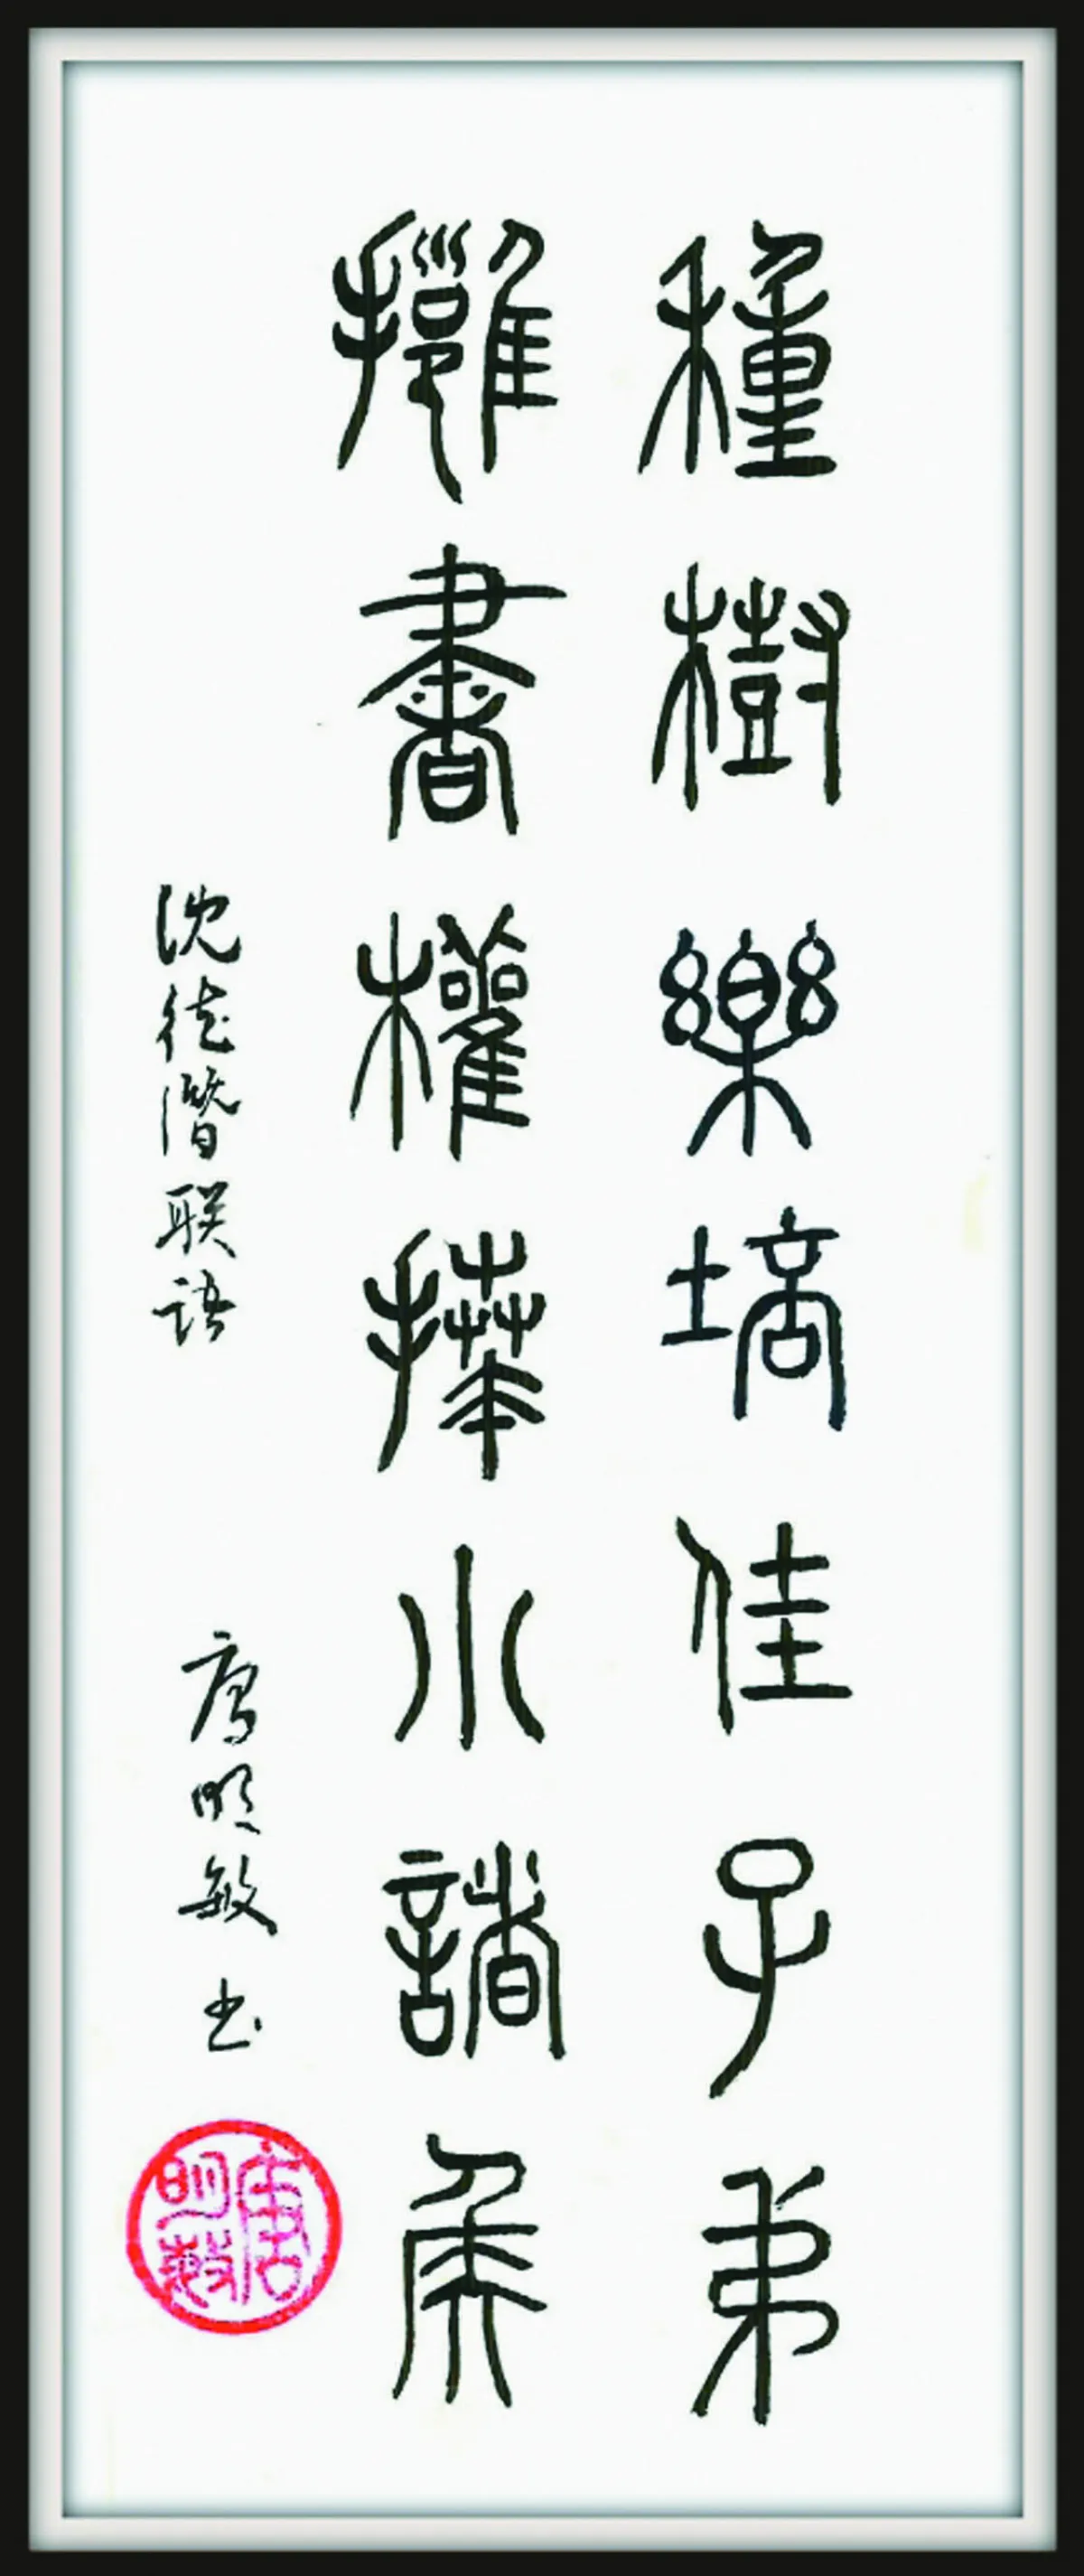 種樹樂培佳子弟
擁書權拜小諸侯
沈德潛联语
唐明敏书
唐明敏